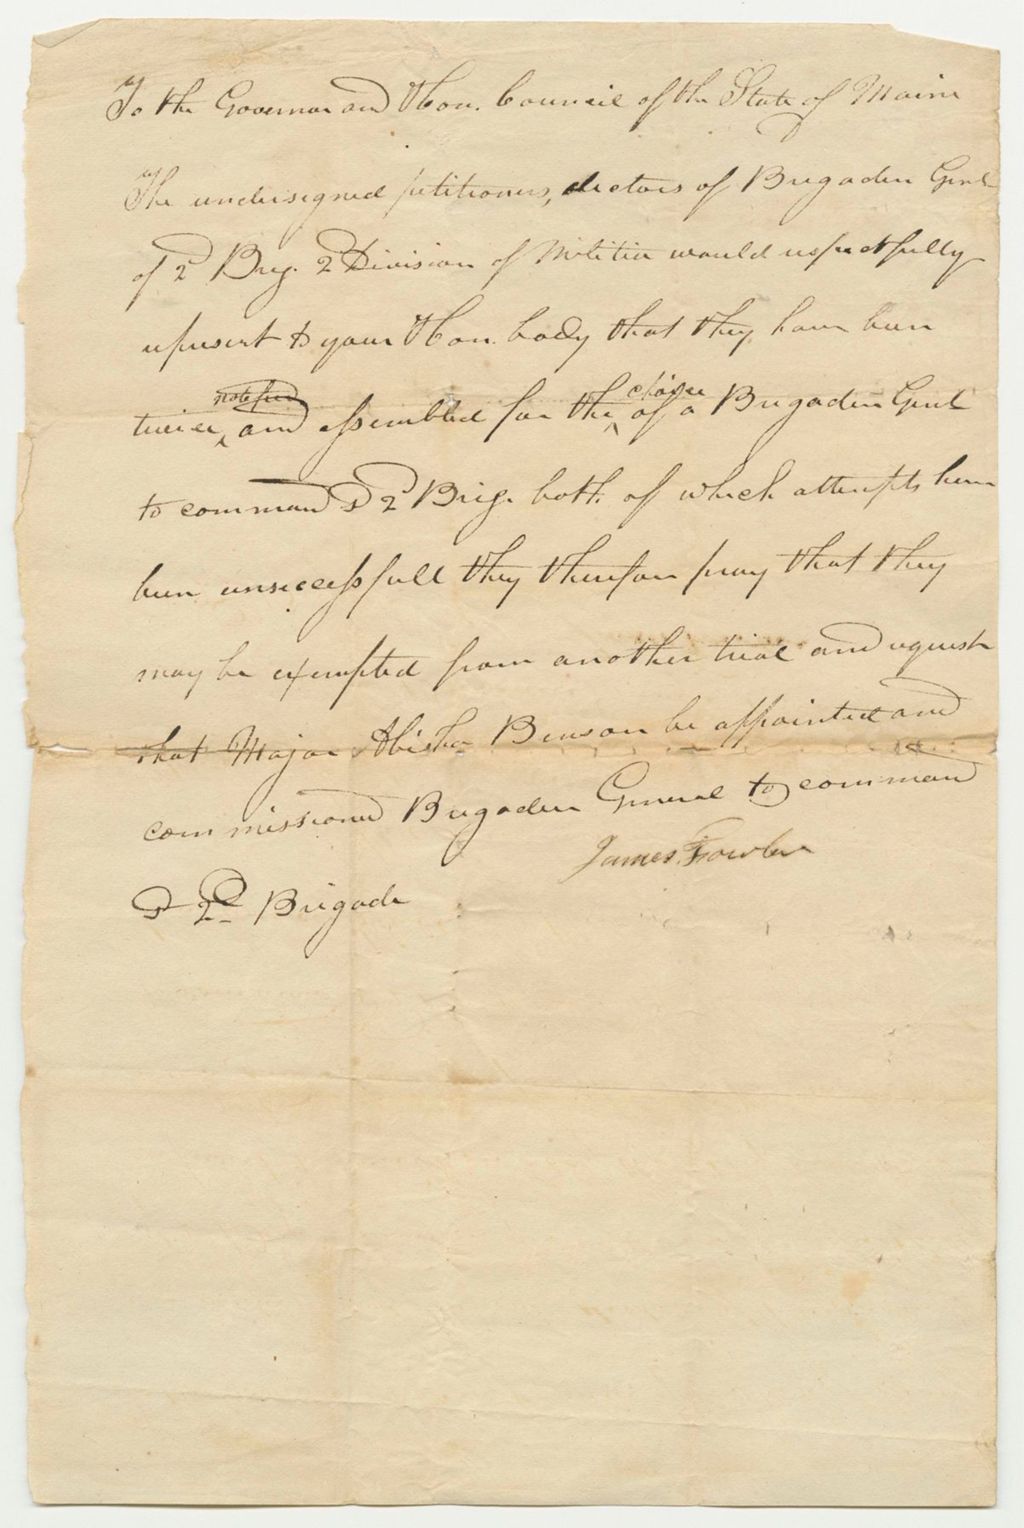 To the Governor and Hon. Council of the State of Maine
The undersigned petitioners, electors of Brigadier Genl
of 2d Brig. 2 Division of Militia would respectfully
represent to your Hon. body that they have been
twice notified and assembled for the choice of a Brigadier Genl
to command sd 2d Brig. both of which attempts have
been unsuccessfull they therefore pray that they
may be exempted from another trial and request
that Major Abisha Benson be appointed and
commissioned Brigadier General to command
James Fowler
sd 2d Brigade